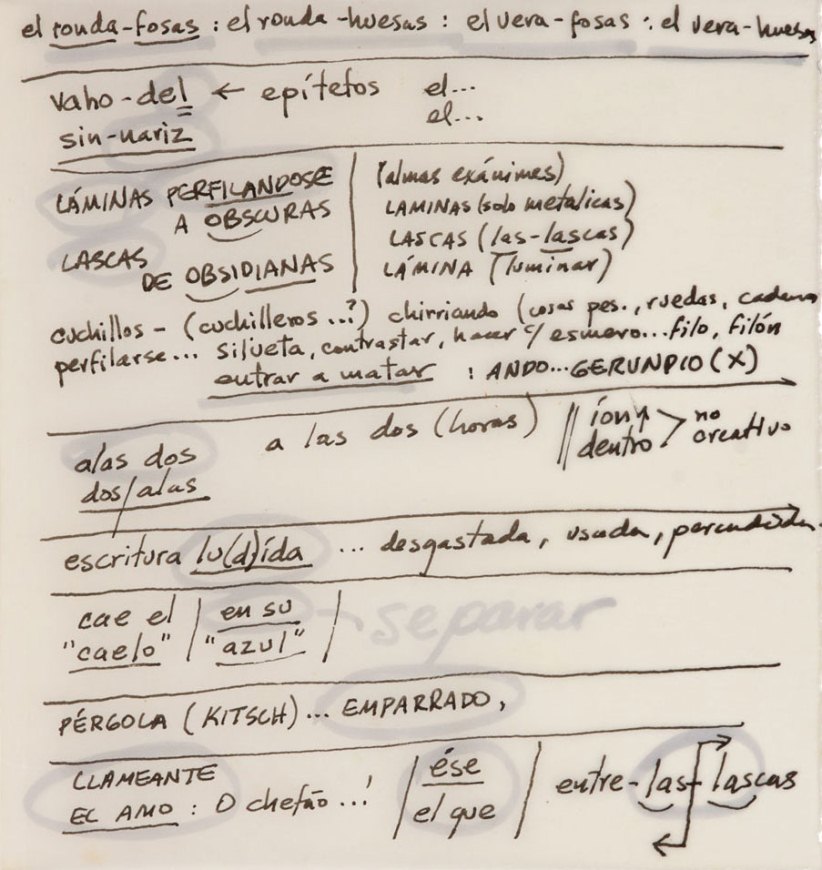 el ronda-fosas : el ronda-huesas : el vera-fosas : el vera-huesas
vaho-del ← epítetos el...
el...
sin-nariz
LÁMINAS PERFILANDOSE
A OBSCURAS
LASCAS
DE OBSIDIANAS
(almas exánimes)
LAMINAS (solo metalicas)
LASCAS (las-lascas)
LÁMINA (luminar)
cuchillos - (cuchilleros ...?) chirriando (cosas pes., ruedas, cadena
perfilarse... silueta, contrastar, hacer c/ esmero... filo, filón
entrar a matar : ANDO... GERUNDIO (X)
alas dos
dos/alas
a las dos (horas)
dentro > no creativo
escritura lu(d)ída ... desgastada, usada, percudida.
cae el | en su |
"caelo" | "azul" |
separar
PÉRGOLA (KITSCH) ... EMPARRADO,
LLAMEANTE
EL AMO : O chefão...!
ése
el que
entre-las-lascas